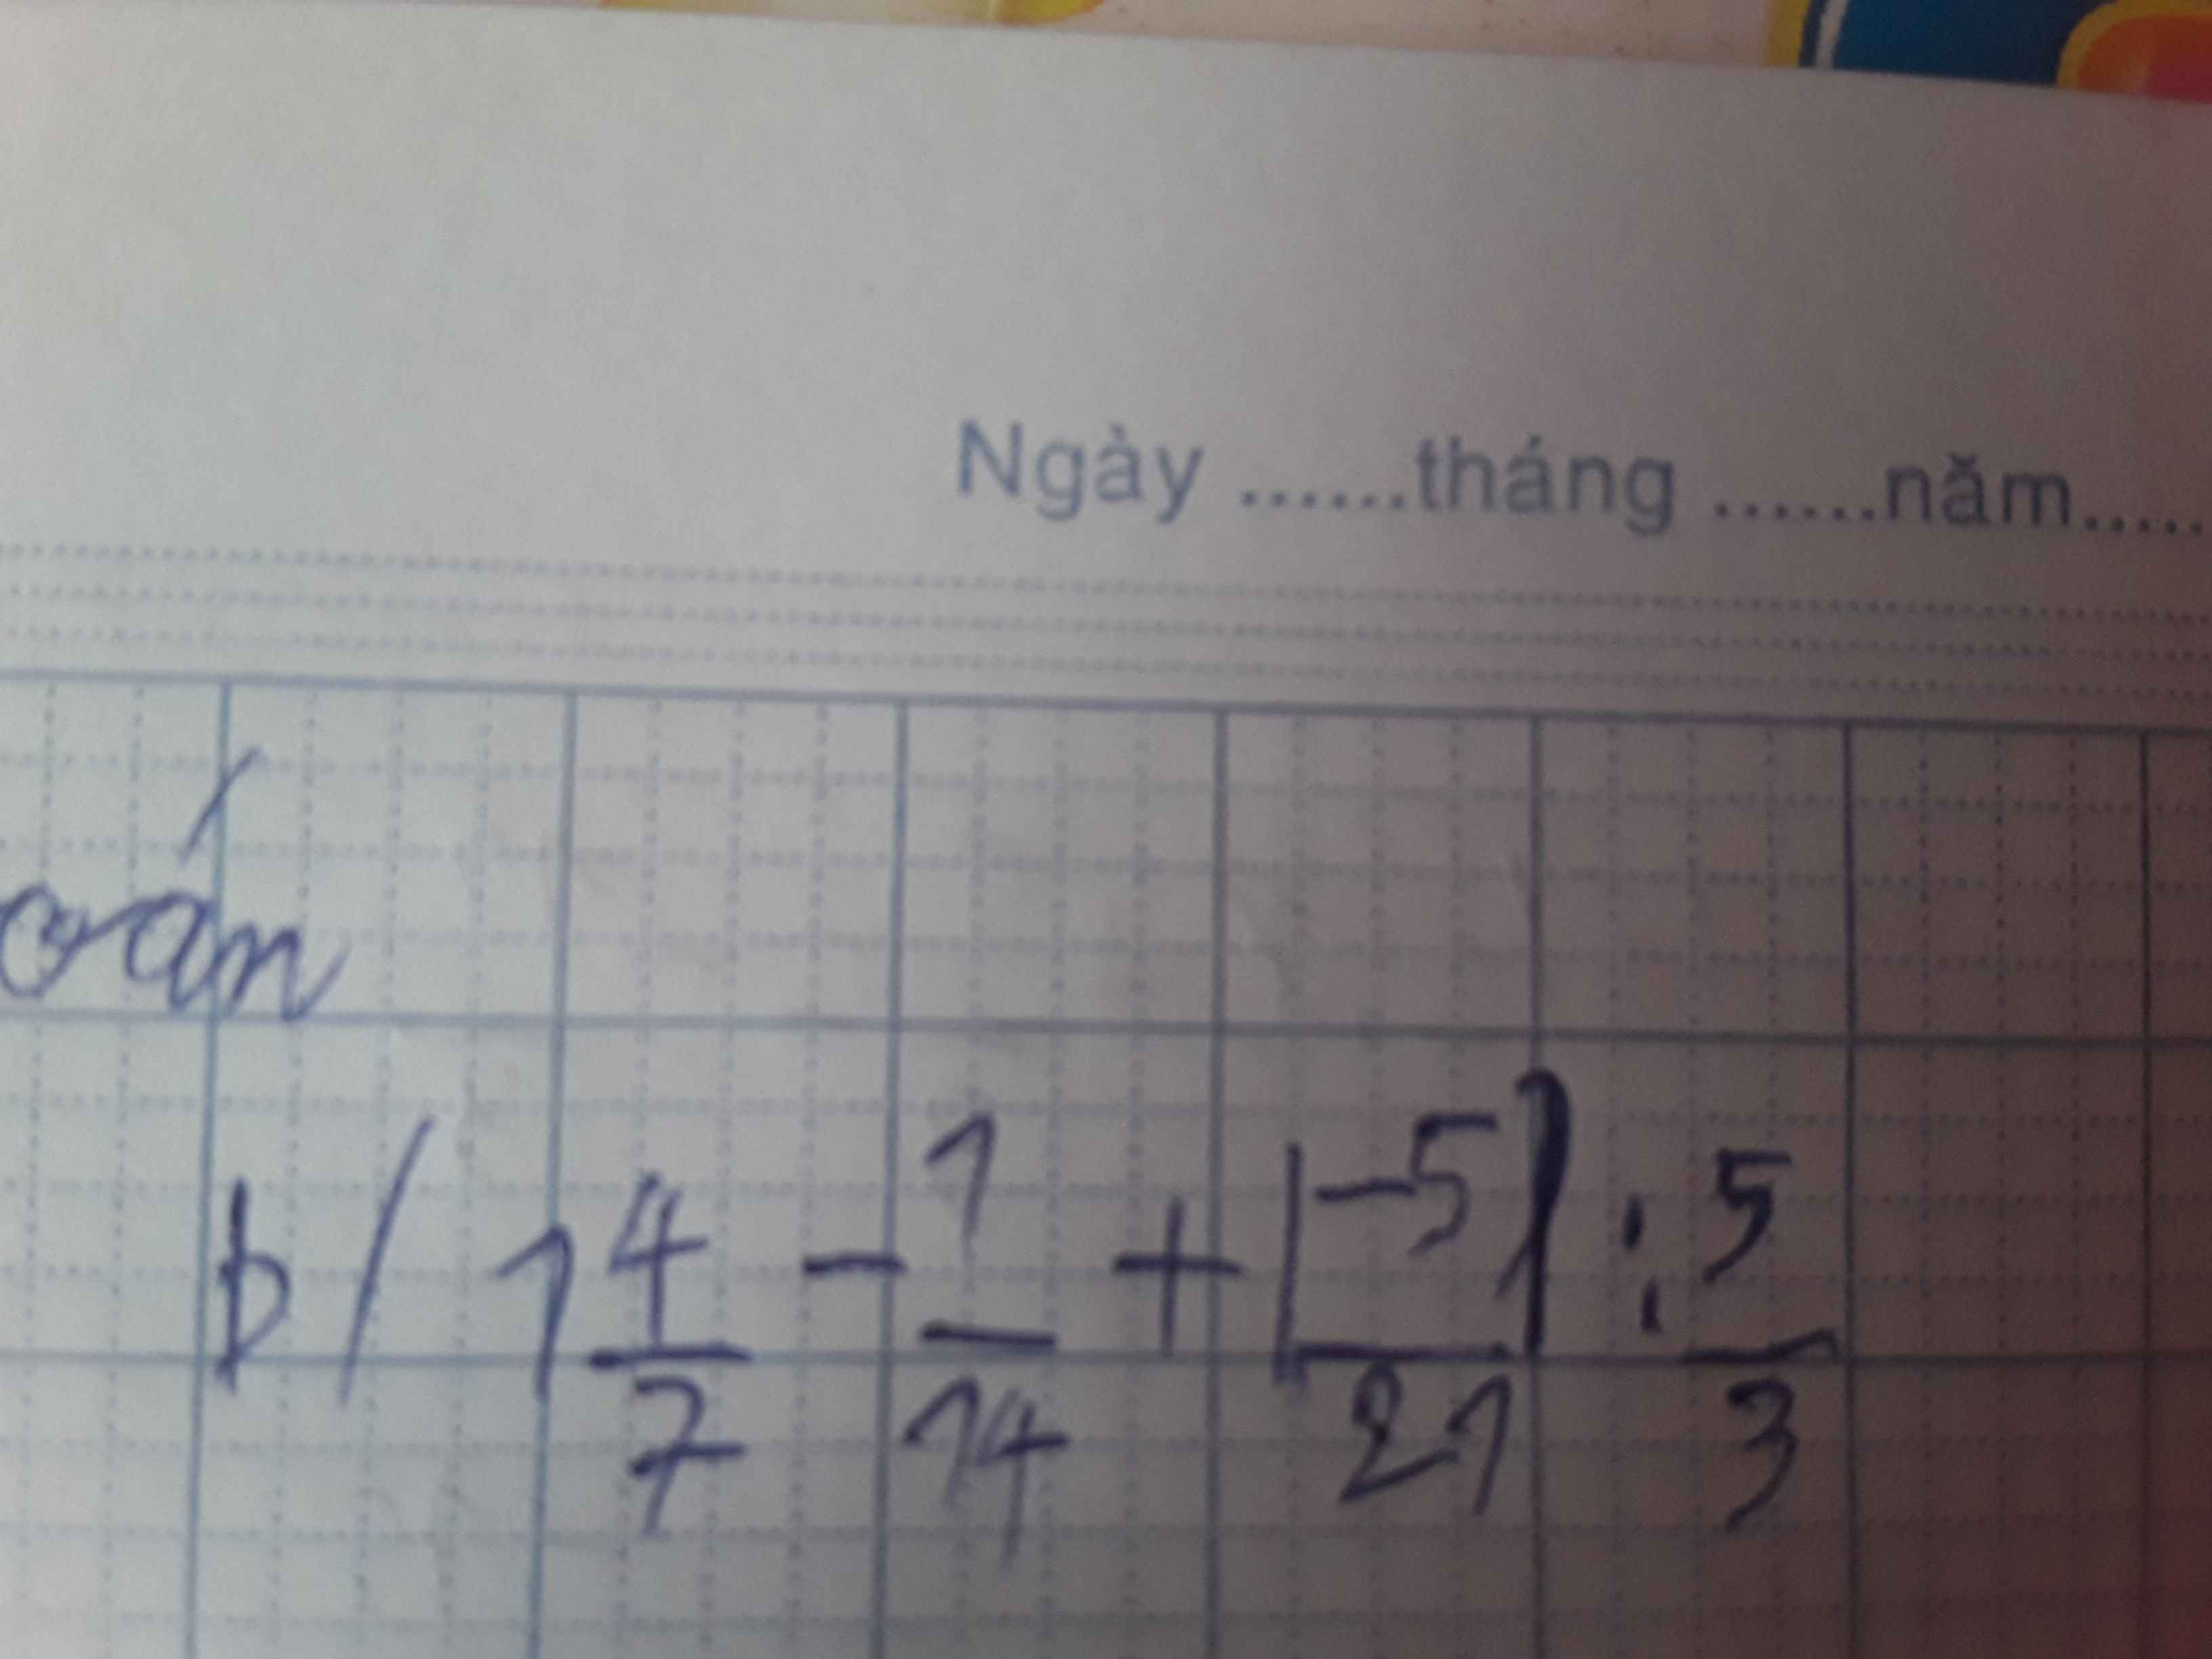 Ngày ......tháng ......năm.....
oán
b/ 1 4/7 - 1/14 + |-5/21| : 5/3